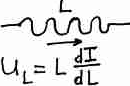 L
U_L = L dI/dL